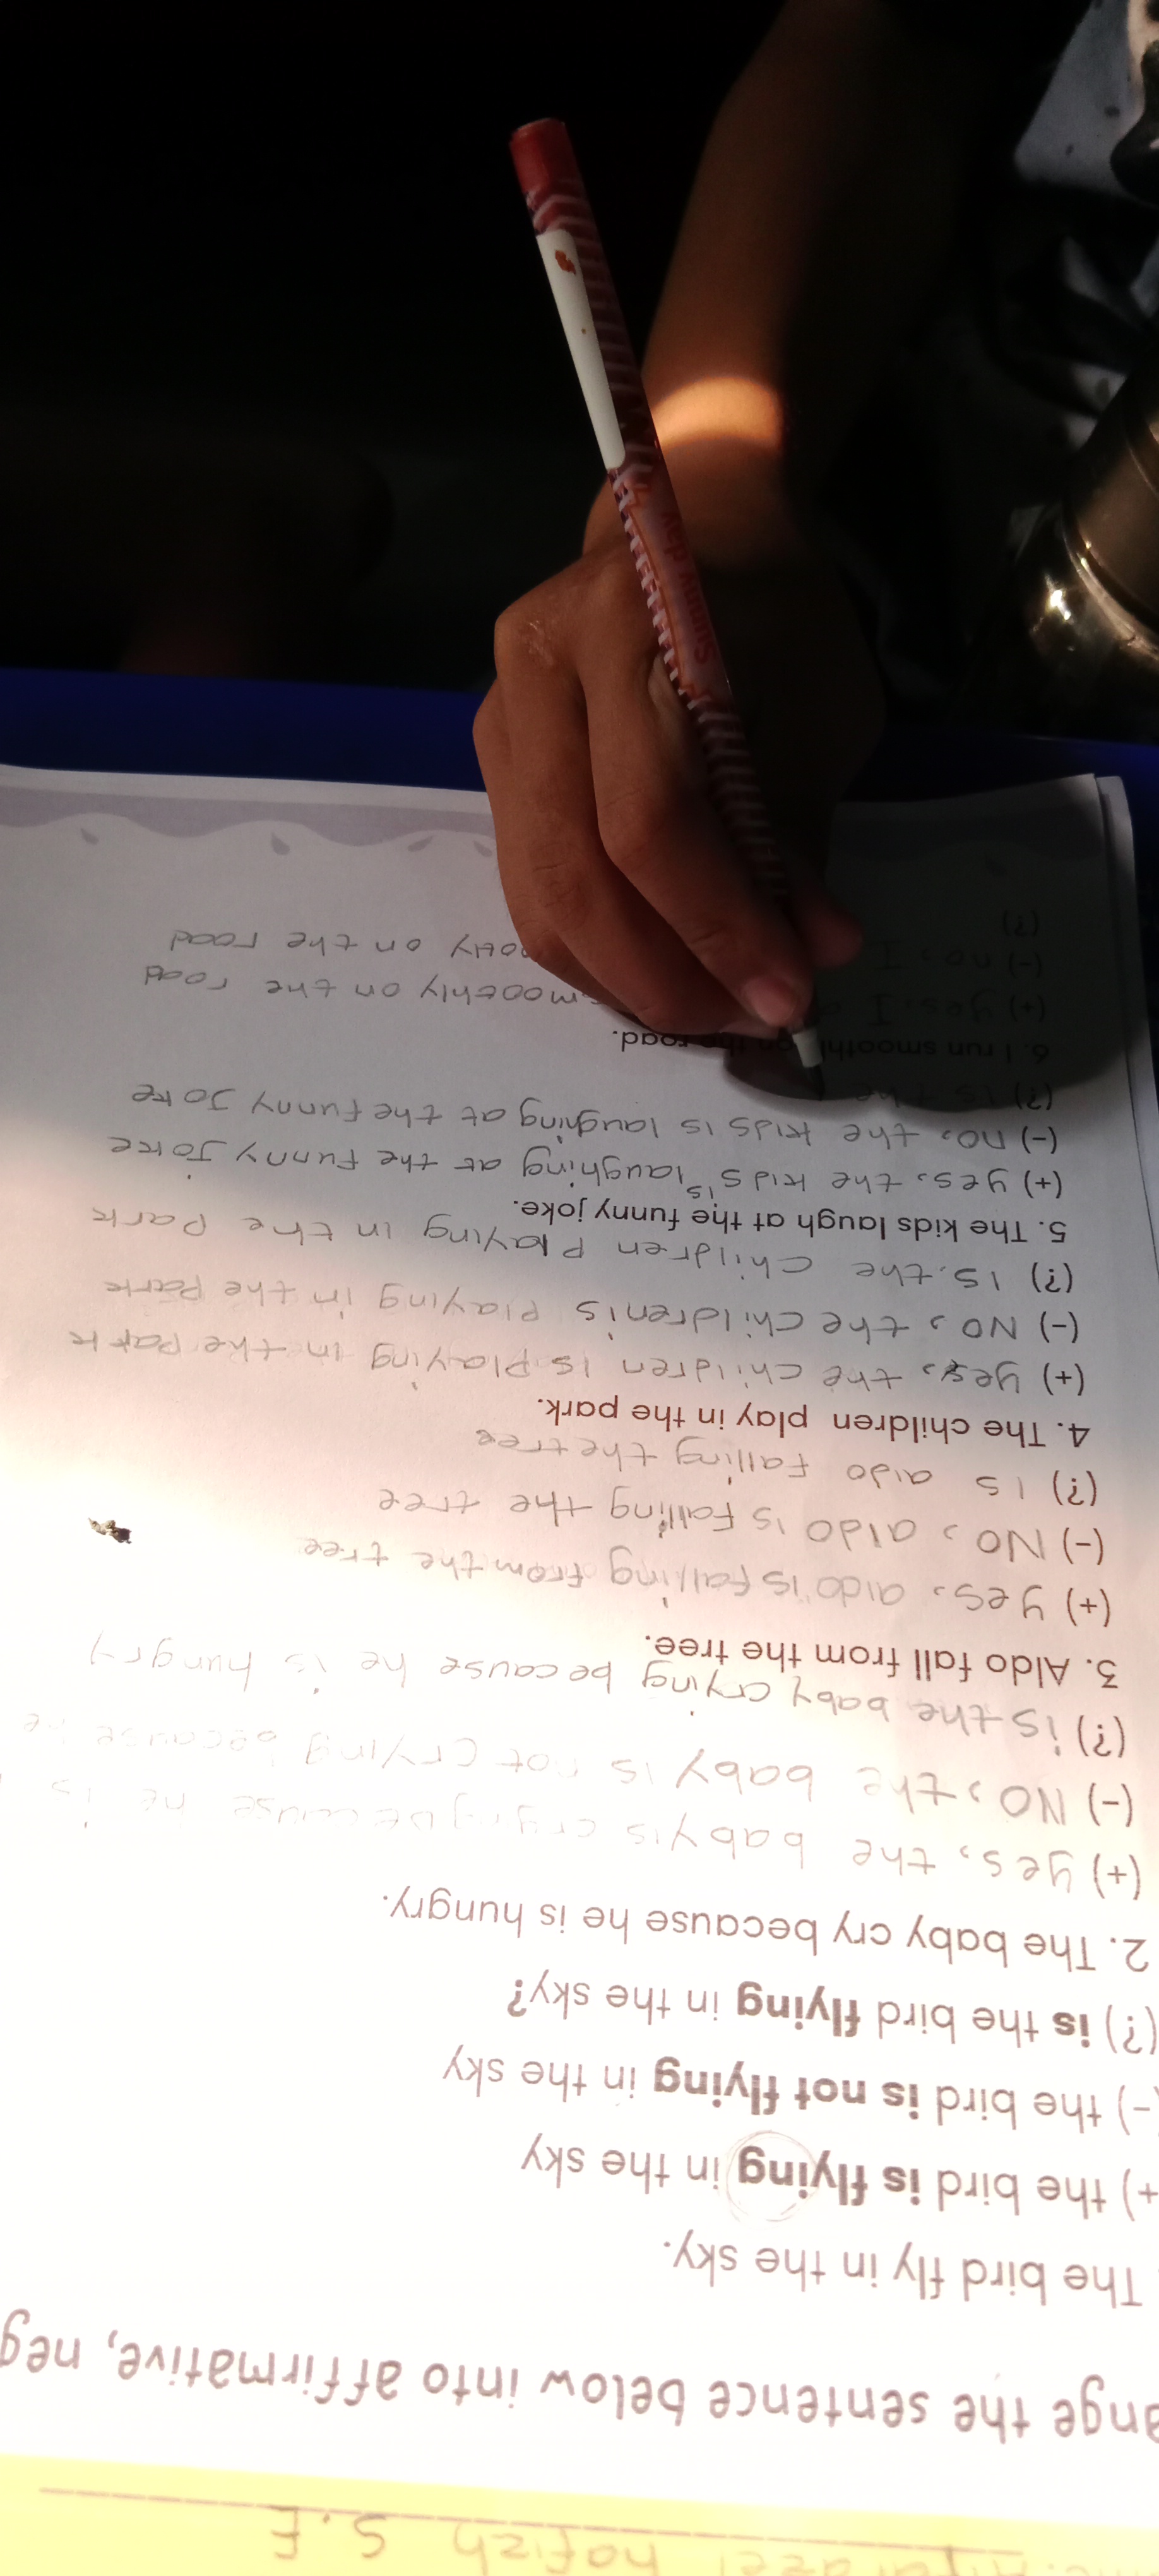 hafizh S.F
ange the sentence below into affirmative, neg
The bird fly in the sky.
+) the bird is flying in the sky
-) the bird is not flying in the sky
(?) is the bird flying in the sky?
2. The baby cry because he is hungry.
(+) yes, the baby is crying because he is
(-) NO, the baby is not crying because he
(?) is the baby crying because he is hungry
3. Aldo fall from the tree.
(+) yes, aldo is falling from the tree
(-) NO, aldo is falling the tree
(?) is aldo falling the tree
4. The children play in the park.
(+) yes, the children is playing in the park
(-) NO, the children is playing in the park
(?) is the children playing in the park
5. The kids laugh at the funny joke.
(+) yes, the kids is laughing at the funny joke
(-) no, the kids is laughing at the funny joke
(?) is the
6. I run smoothly on the road.
(+) yes, I smoothly on the road
(-) no, I on the road
(?)
Sunny day